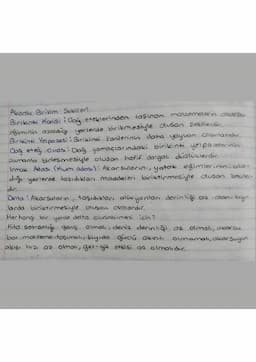 Akarsu Birikim Şekilleri
Birikinti Konisi: Dağ eteklerinden taşınan malzemelerin akarsu
eğiminin azaldığı yerlerde birikmesiyle oluşan şekillerdir.
Birikinti Yelpazesi: Birikinti konilerinin daha yayvan olanlarıdır.
Dağ eteği Ovası: Dağ yamaçlarındaki birikinti yelpazelerinin
zamanla birleşmesiyle oluşan hafif dalgalı düzlüklerdir.
Irmak Adası (Kum adası): Akarsularını, yatak eğimlerinin azal-
dığı yerlerde taşıdıkları maddeleri biriktirmesiyle oluşan
dır.
Delta: Akarsuların, taşıdıkları alüvyonları derinliği az olan kıyı-
larda biriktirmesiyle oluşan ovalardır.
Herhangi bir yerde delta oluşabilmesi için?
Kıta sahanlığı geniş olmalı, deniz derinliği az olmalı, akarsu
bol malzeme taşımalı, kıyıda güçlü akıntı olmamalı, akarsuyun
akış hızı az olmalı, gel-git etkisi az olmalıdır.